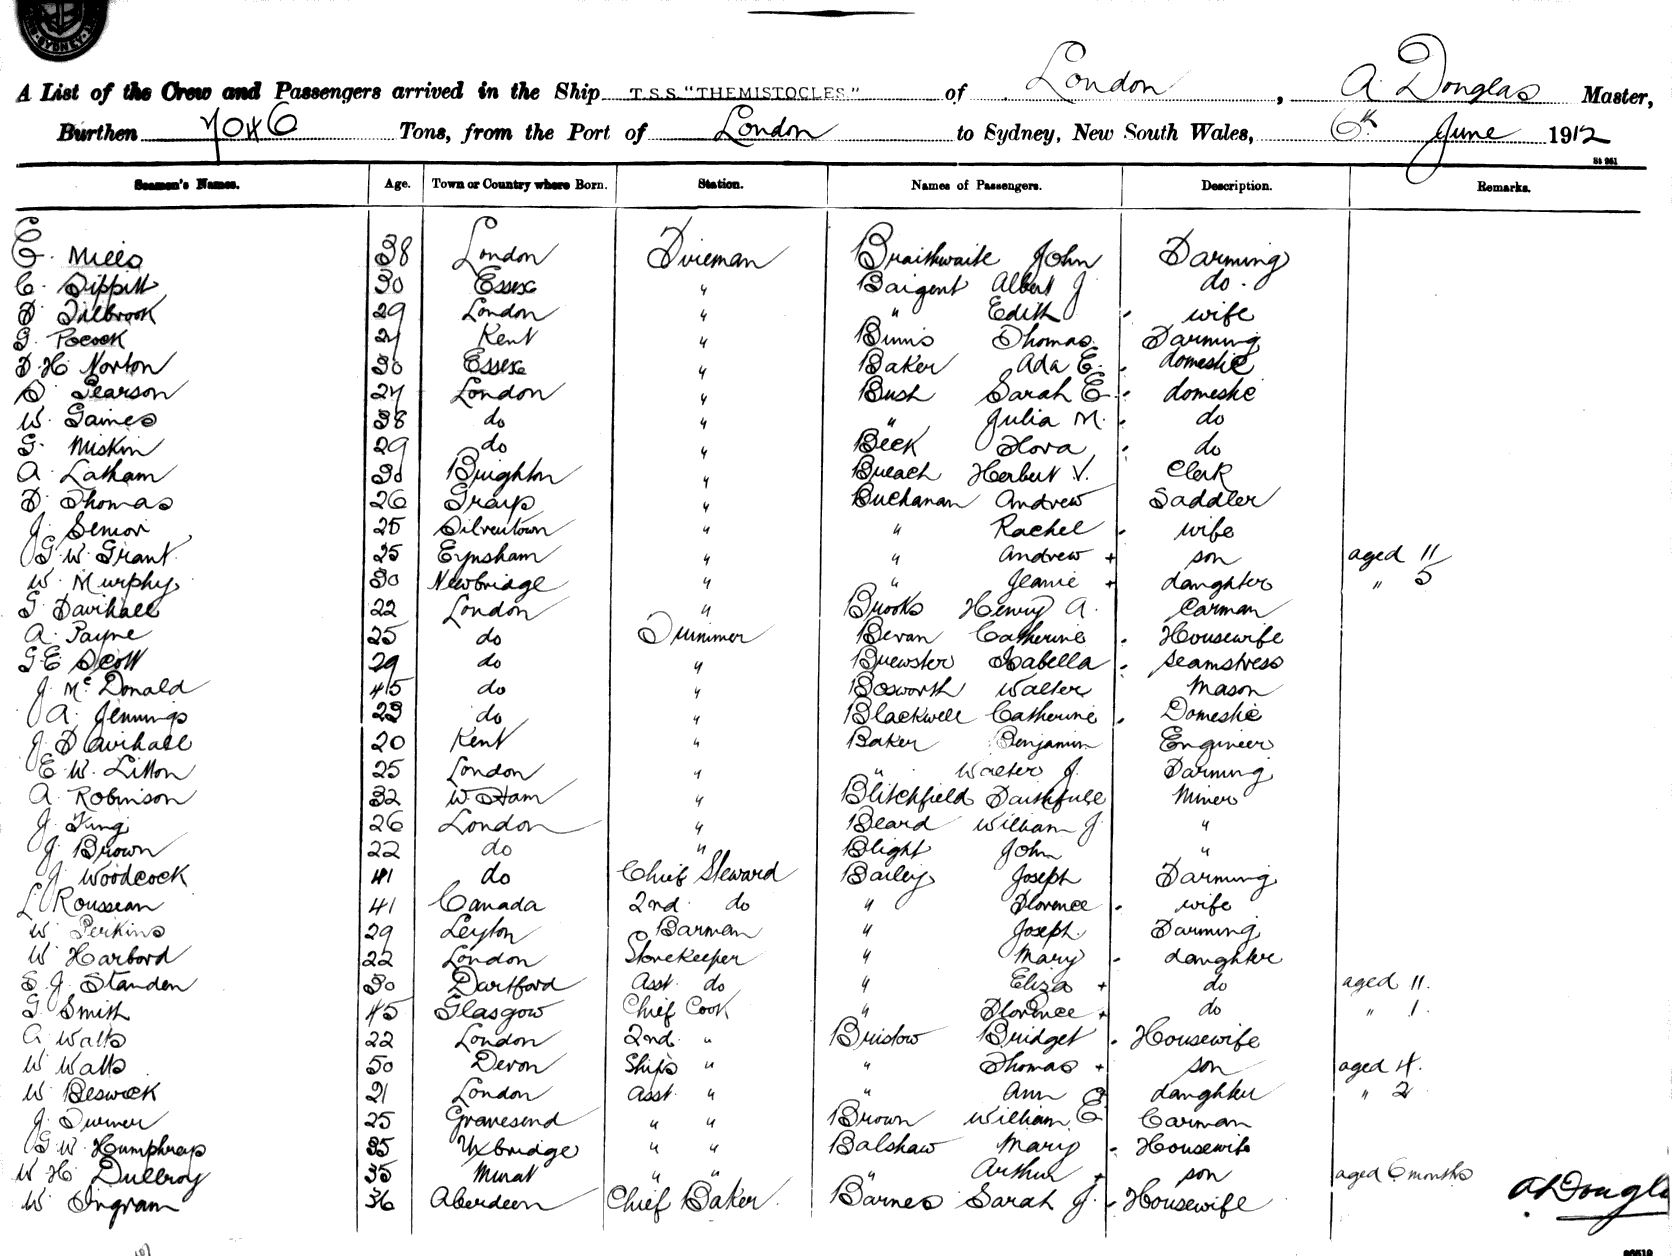 SYDNEY
A List of the Crew and Passengers arrived in the Ship T.S.S. "THEMISTOCLES." of London, A Douglas Master,
Burthen 7046 Tons, from the Port of London to Sydney, New South Wales, 6th June 1912
Seamen's Names. Age. Town or Country where Born. Station. Names of Passengers. Description. Remarks.
E. Mills 38 London Fireman Braithwaite John Farming
C. Tippitt 30 Essex " Baigent Albert J do.
F. Talbrook 29 London " " Edith wife
G. Pocock 27 Kent " Binns Thomas Farming
F. H. Norton 30 Essex " Baker Ada E. domestic
S. Pearson 27 London " Bush Sarah E. domestic
W. Gaines 38 do " " Julia M. do
G. Miskin 29 do " Beck Flora do
A. Latham 30 Brighton " Breach Herbert V. Clerk
F. Thomas 26 Grays " Buchanan Andrew Saddler
J. Senior 25 Silvertown " " Rachel wife
G. W. Grant 25 Eynsham " " Andrew + son aged 11
W. Murphy 30 Newbridge " " Jeanie + daughter " 5
G. Davihall 22 London " Brooks Henry A. Carman
A. Payne 25 do Trimmer Bevan Catherine Housewife
G E Scott 29 do " Brewster Isabella Seamstress
J. McDonald 45 do " Bosworth Walter Mason
A. Jennings 23 do " Blackwell Catherine Domestic
J. Davihall 20 Kent " Baker Benjamin Engineer
E. W. Litton 25 London " " Walter J. Farming
A. Robinson 32 W. Ham " Blitchfield Faithfull Miner
J. King 26 London " Beard William J "
J. Brown 22 do " Blight John "
J. Woodcock 41 do Chief Steward Bailey Joseph Farming
L. Rousseau 41 Canada 2nd do " Florence wife
W. Perkins 29 Leyton Barman " Joseph Farming
W. Harbord 22 London Storekeeper " Mary daughter
S. J. Standen 30 Dartford Asst. do " Eliza + do aged 11.
G. Smith 45 Glasgow Chief Cook " Florence + do " 1.
A. Watts 22 London 2nd " Bristow Bridget Housewife
W Watts 50 Devon Ships " " Thomas + son aged 4.
W Beswick 21 London Asst. " " Ann daughter " 2
J. Turner 25 Gravesend " " Brown William E Carman
G. W. Humphreys 35 Uxbridge " " Balshaw Mary Housewife
W H Dullroy 35 " " " Arthur + son aged 6 months
W Ingram 36 Aberdeen Chief Baker Barnes Sarah J. Housewife
A Dougla